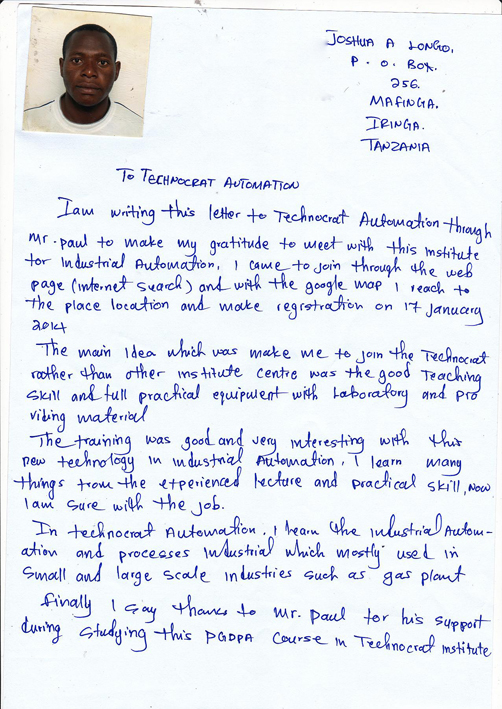 JOSHUA A LONGO,
P. O. BOX.
256.
MAFINGA.
IRINGA.
TANZANIA
To TECHNOCRAT AUTOMATION
I am writing this letter to Technocrat Automation through
Mr. paul to make my gratitude to meet with this Institute
for Industrial Automation, I came to join through the web
page (internet search) and with the google map I reach to
the place location and make registration on 17 January
2014
The main Idea which was make me to join the Technocrat
rather than other institute centre was the good Teaching
skill and full practical equipment with Laboratory and pro
viding material
The training was good and very interesting with this
new technology in industrial Automation, I learn many
things from the experienced lecture and practical skill, now
I am sure with the job.
In technocrat Automation, I learn the industrial Autom-
ation and processes Industrial which mostly used in
small and large scale industries such as gas plant
finally I say thanks to Mr. Paul for his support
during studying this PGDPA course in Technocrat institute